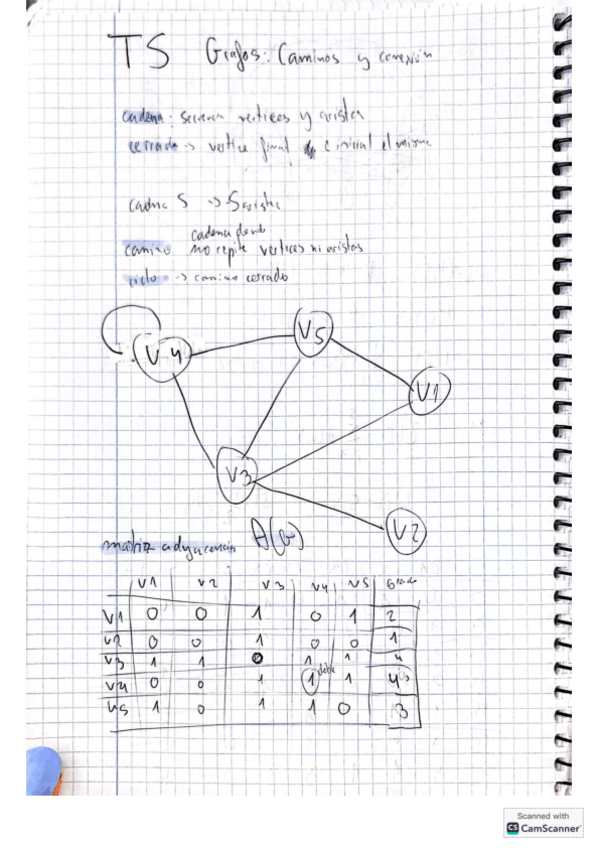 T5 Grafos: Caminos y conexión
cadena: secuencia vertices y aristas
cerrada -> vertice final e inicial el mismo
cadena 5 -> 5 aristas
cadena donde
camino no repite vertices ni aristas
ciclo -> camino cerrado
V4
V5
V1
V3
V2
matriz adyacencia A(G)
V1 V2 V3 V4 V5 Grado
V1 0 0 1 0 1 2
V2 0 0 1 0 0 1
V3 1 1 0 1 1 4
doble
V4 0 0 1 1 1 4
V5 1 0 1 1 0 3
Scanned with
CS CamScanner